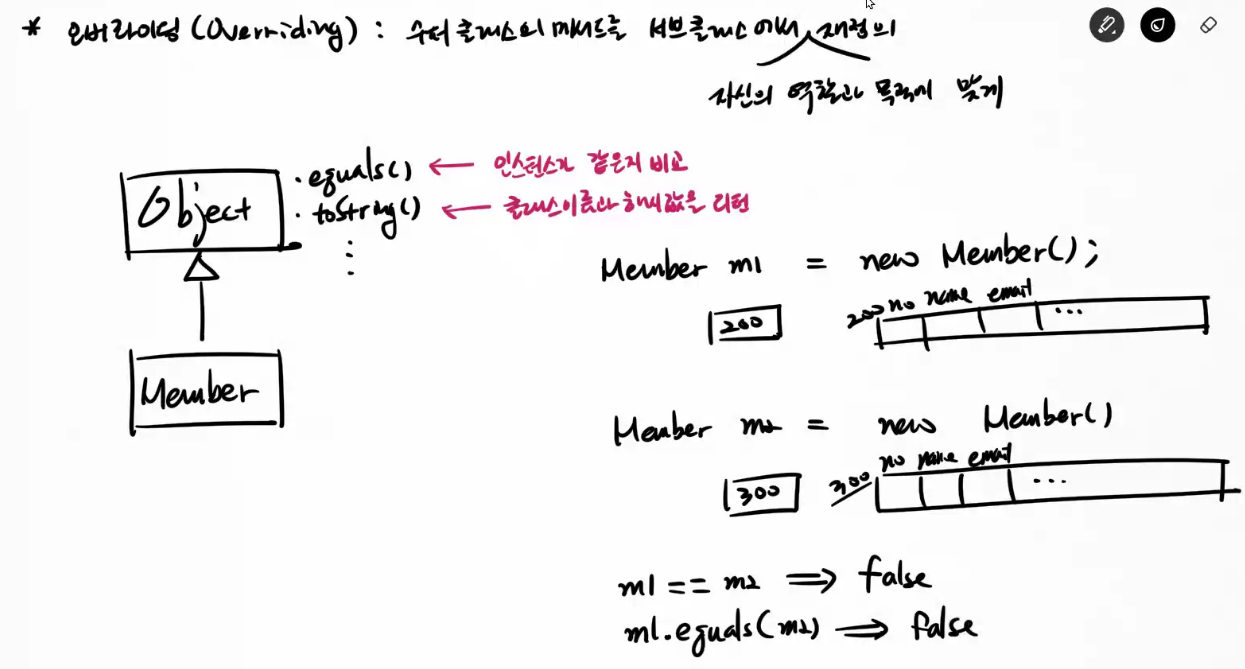 * 오버라이딩(Overriding) : 수퍼 클래스의 메서드를 서브 클래스에서 재정의
자신의 역할과 목적에 맞게
Object
. equals() ← 인스턴스가 같은지 비교
. toString() ← 클래스이름과 해시값을 리턴
⋮
Member
Member m1 = new Member();
200
200 no name email ...
Member m2 = new Member()
300
300 no name email ...
m1 == m2 ⇒ false
m1.equals(m2) ⇒ false